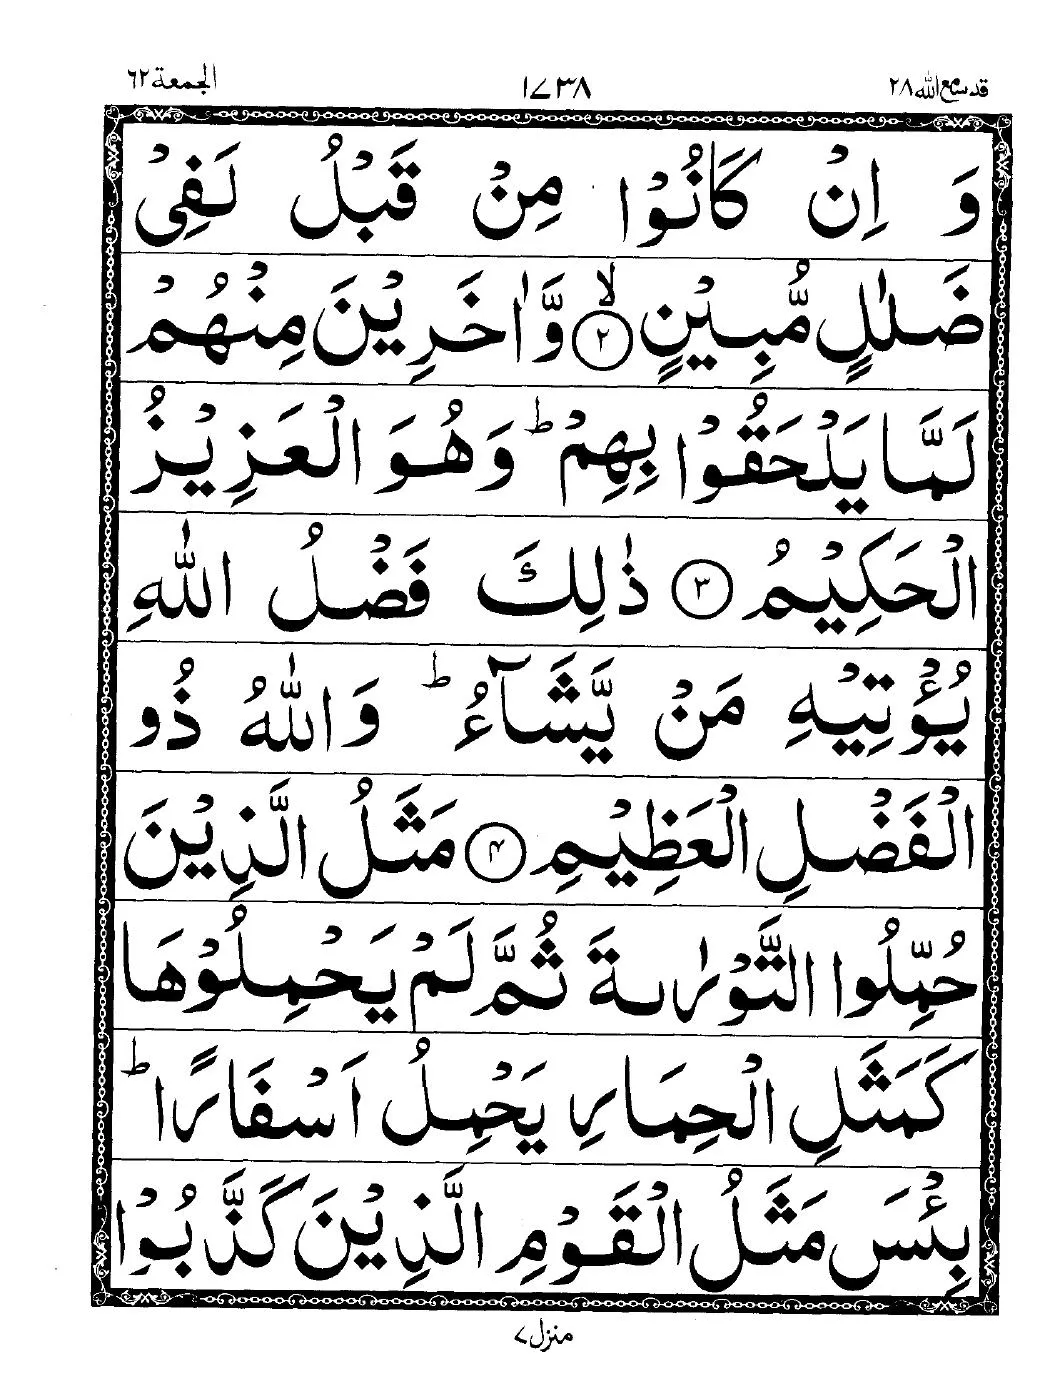 قد سمع الله ٢٨ ١٧٣٨ الجمعة ٦٢
وَ اِنْ كَانُوْا مِنْ قَبْلُ لَفِیْ
ضَلٰلٍ مُّبِیْنٍ ۙ﴿۲﴾ وَّاٰخَرِیْنَ مِنْهُمْ
لَمَّا یَلْحَقُوْا بِهِمْ ؕ وَهُوَ الْعَزِیْزُ
الْحَكِیْمُ ﴿۳﴾ ذٰلِكَ فَضْلُ اللّٰهِ
یُؤْتِیْهِ مَنْ یَّشَآءُ ؕ وَاللّٰهُ ذُو
الْفَضْلِ الْعَظِیْمِ ﴿۴﴾ مَثَلُ الَّذِیْنَ
حُمِّلُوا التَّوْرٰىةَ ثُمَّ لَمْ یَحْمِلُوْهَا
كَمَثَلِ الْحِمَارِ یَحْمِلُ اَسْفَارًا ؕ
بِئْسَ مَثَلُ الْقَوْمِ الَّذِیْنَ كَذَّبُوْا
منزل ٧